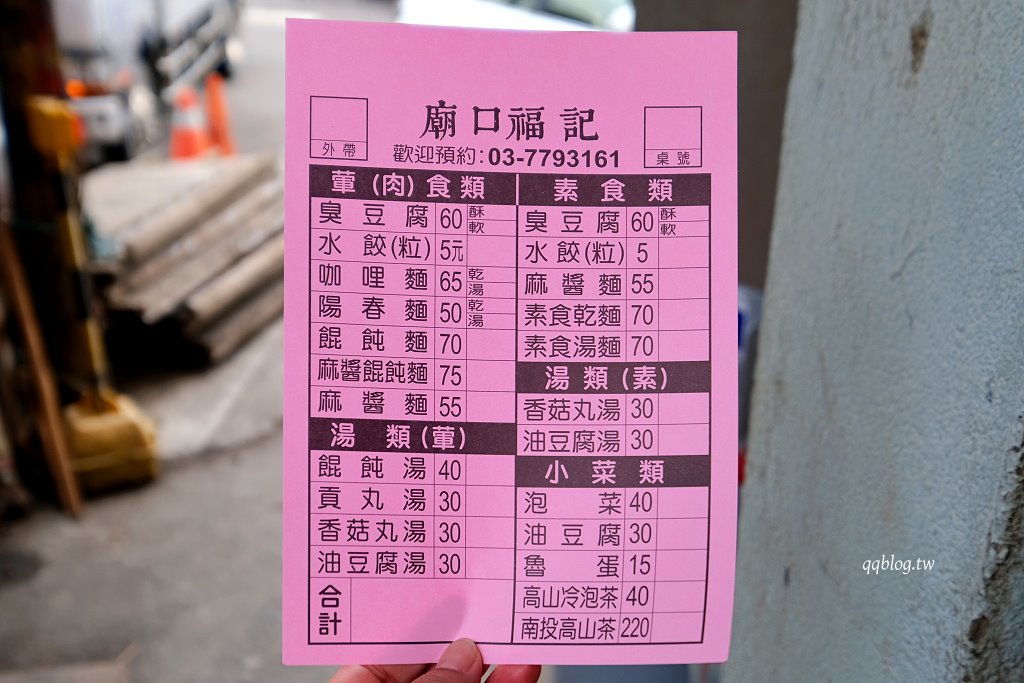 廟口福記
外帶
歡迎預約:03-7793161
桌號
葷(肉)食類
臭豆腐 60 酥 軟
水餃(粒) 5元
咖哩麵 65 乾 湯
陽春麵 50 乾 湯
餛飩麵 70
麻醬餛飩麵 75
麻醬麵 55
湯類(葷)
餛飩湯 40
貢丸湯 30
香菇丸湯 30
油豆腐湯 30
合計
素食類
臭豆腐 60 酥 軟
水餃(粒) 5
麻醬麵 55
素食乾麵 70
素食湯麵 70
湯類(素)
香菇丸湯 30
油豆腐湯 30
小菜類
泡菜 40
油豆腐 30
魯蛋 15
高山冷泡茶 40
南投高山茶 220
qqblog.tw